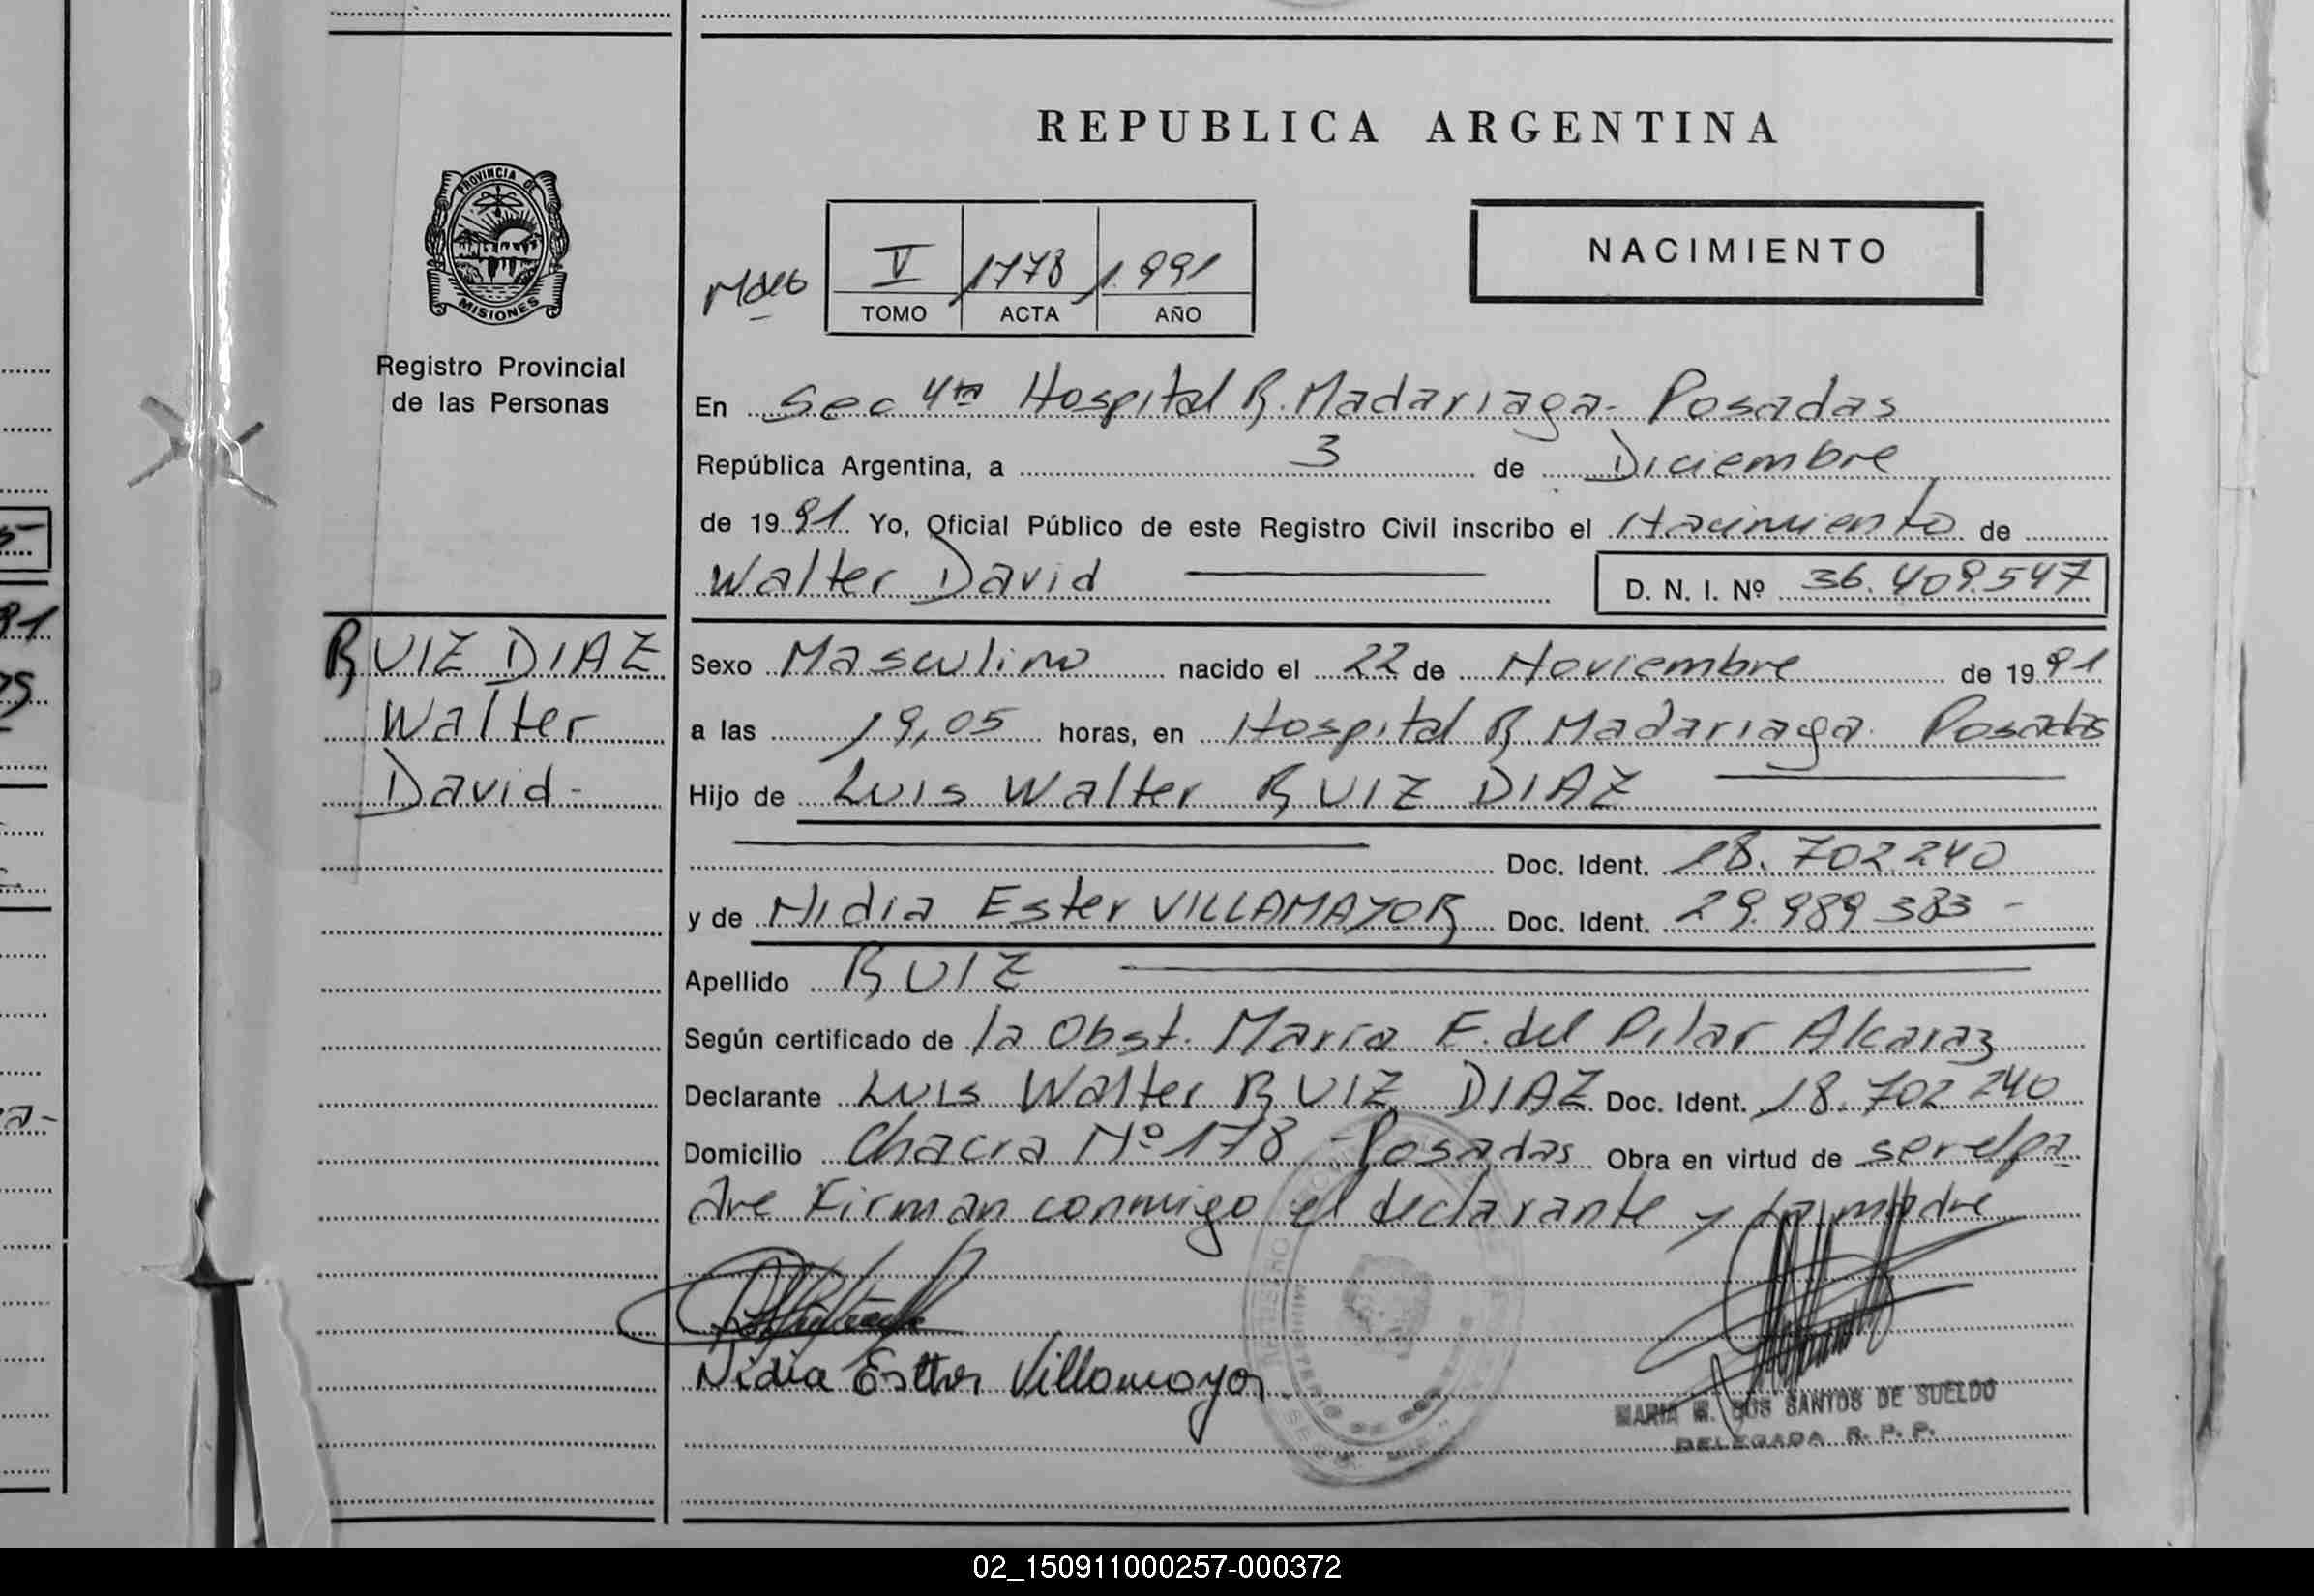 REPUBLICA ARGENTINA
PROVINCIA DE
MISIONES
Registro Provincial
de las Personas
V 1778 1.991
TOMO ACTA AÑO
NACIMIENTO
En Sec 4ta Hospital R. Madariaga - Posadas
República Argentina, a 3 de Diciembre
de 1991 Yo, Oficial Público de este Registro Civil inscribo el Nacimiento de
Walter David D. N. I. Nº 36.409.547
RUIZ DIAZ
Walter
David-
Sexo Masculino nacido el 22 de Noviembre de 1991
a las 19,05 horas, en Hospital R. Madariaga. Posadas
Hijo de Luis Walter RUIZ DIAZ
Doc. Ident. 18.702240
y de Nidia Ester VILLAMAYOR Doc. Ident. 29.989 383 -
Apellido RUIZ
Según certificado de la Obst. María E. del Pilar Alcaraz
Declarante Luis Walter RUIZ DIAZ Doc. Ident. 18.702 240
Domicilio Chacra Nº 178 - Posadas Obra en virtud de ser el pa
dre Firman conmigo el declarante y la madre
Nidia Esther Villamayor
MARIA M. DOS SANTOS DE SUELDO
DELEGADA R. P. P.
02_150911000257-000372